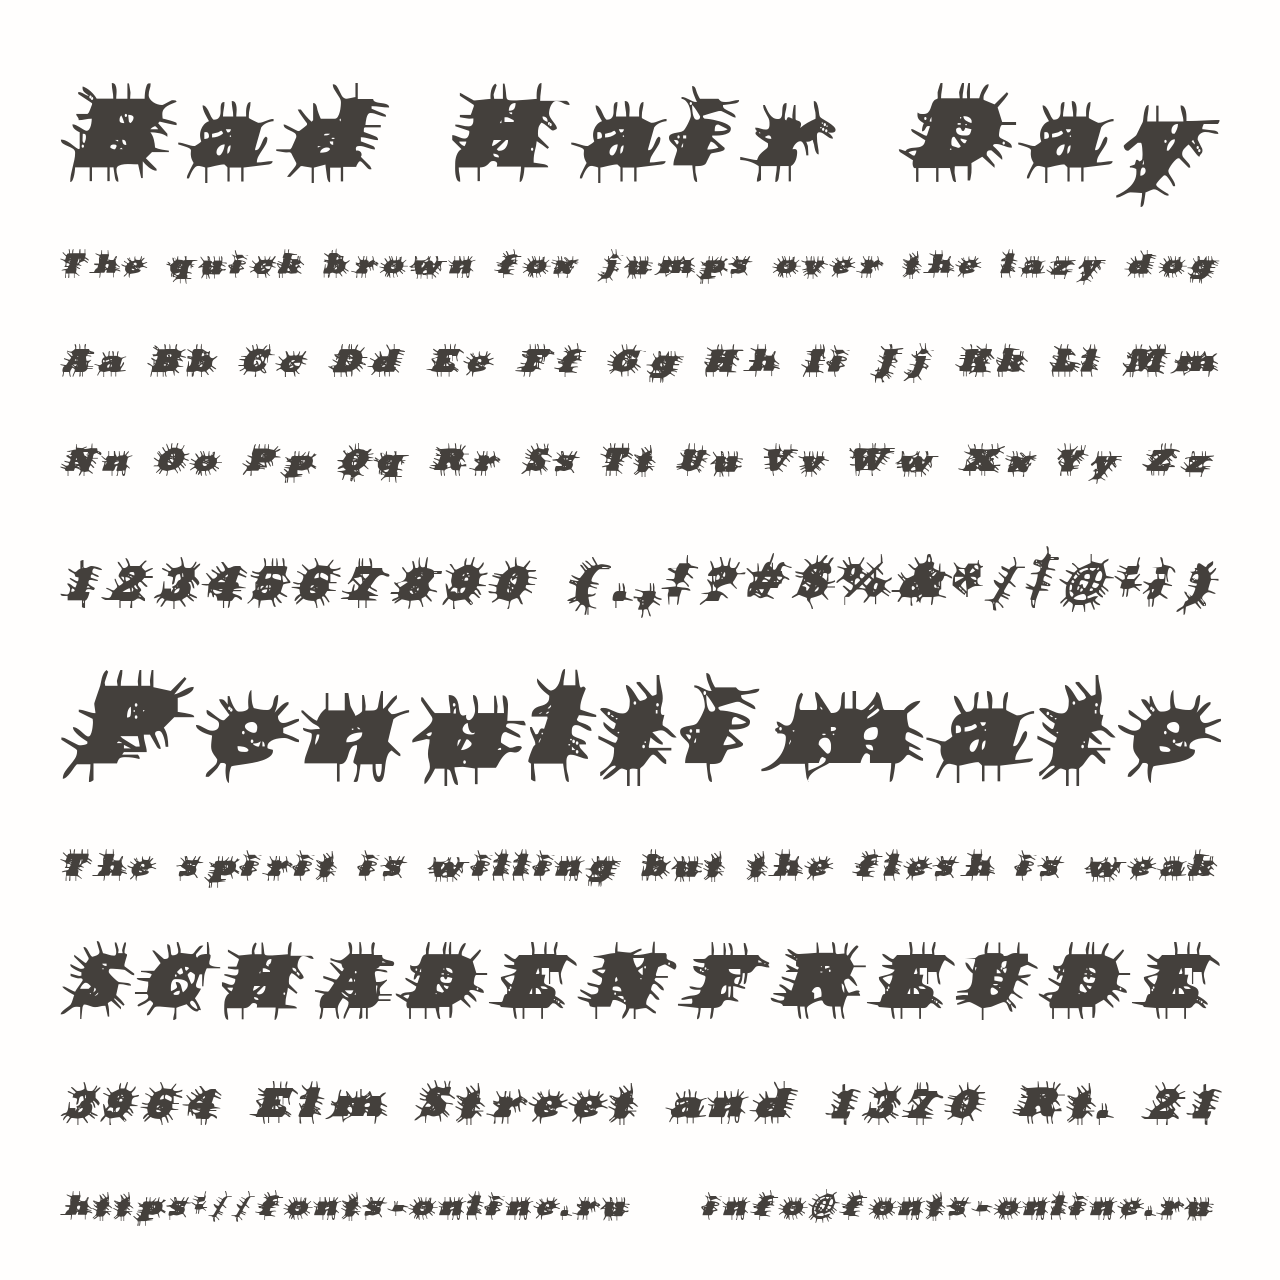 Bad Hair Day
The quick brown fox jumps over the lazy dog
Aa Bb Cc Dd Ee Ff Gg Hh Ii Jj Kk Ll Mm
Nn Oo Pp Qq Rr Ss Tt Uu Vv Ww Xx Yy Zz
1234567890 (.,!?#$%&*/|@:;)
Penultimate
The spirit is willing but the flesh is weak
SCHADENFREUDE
3964 Elm Street and 1370 Rt. 21
https://fonts-online.ru info@fonts-online.ru